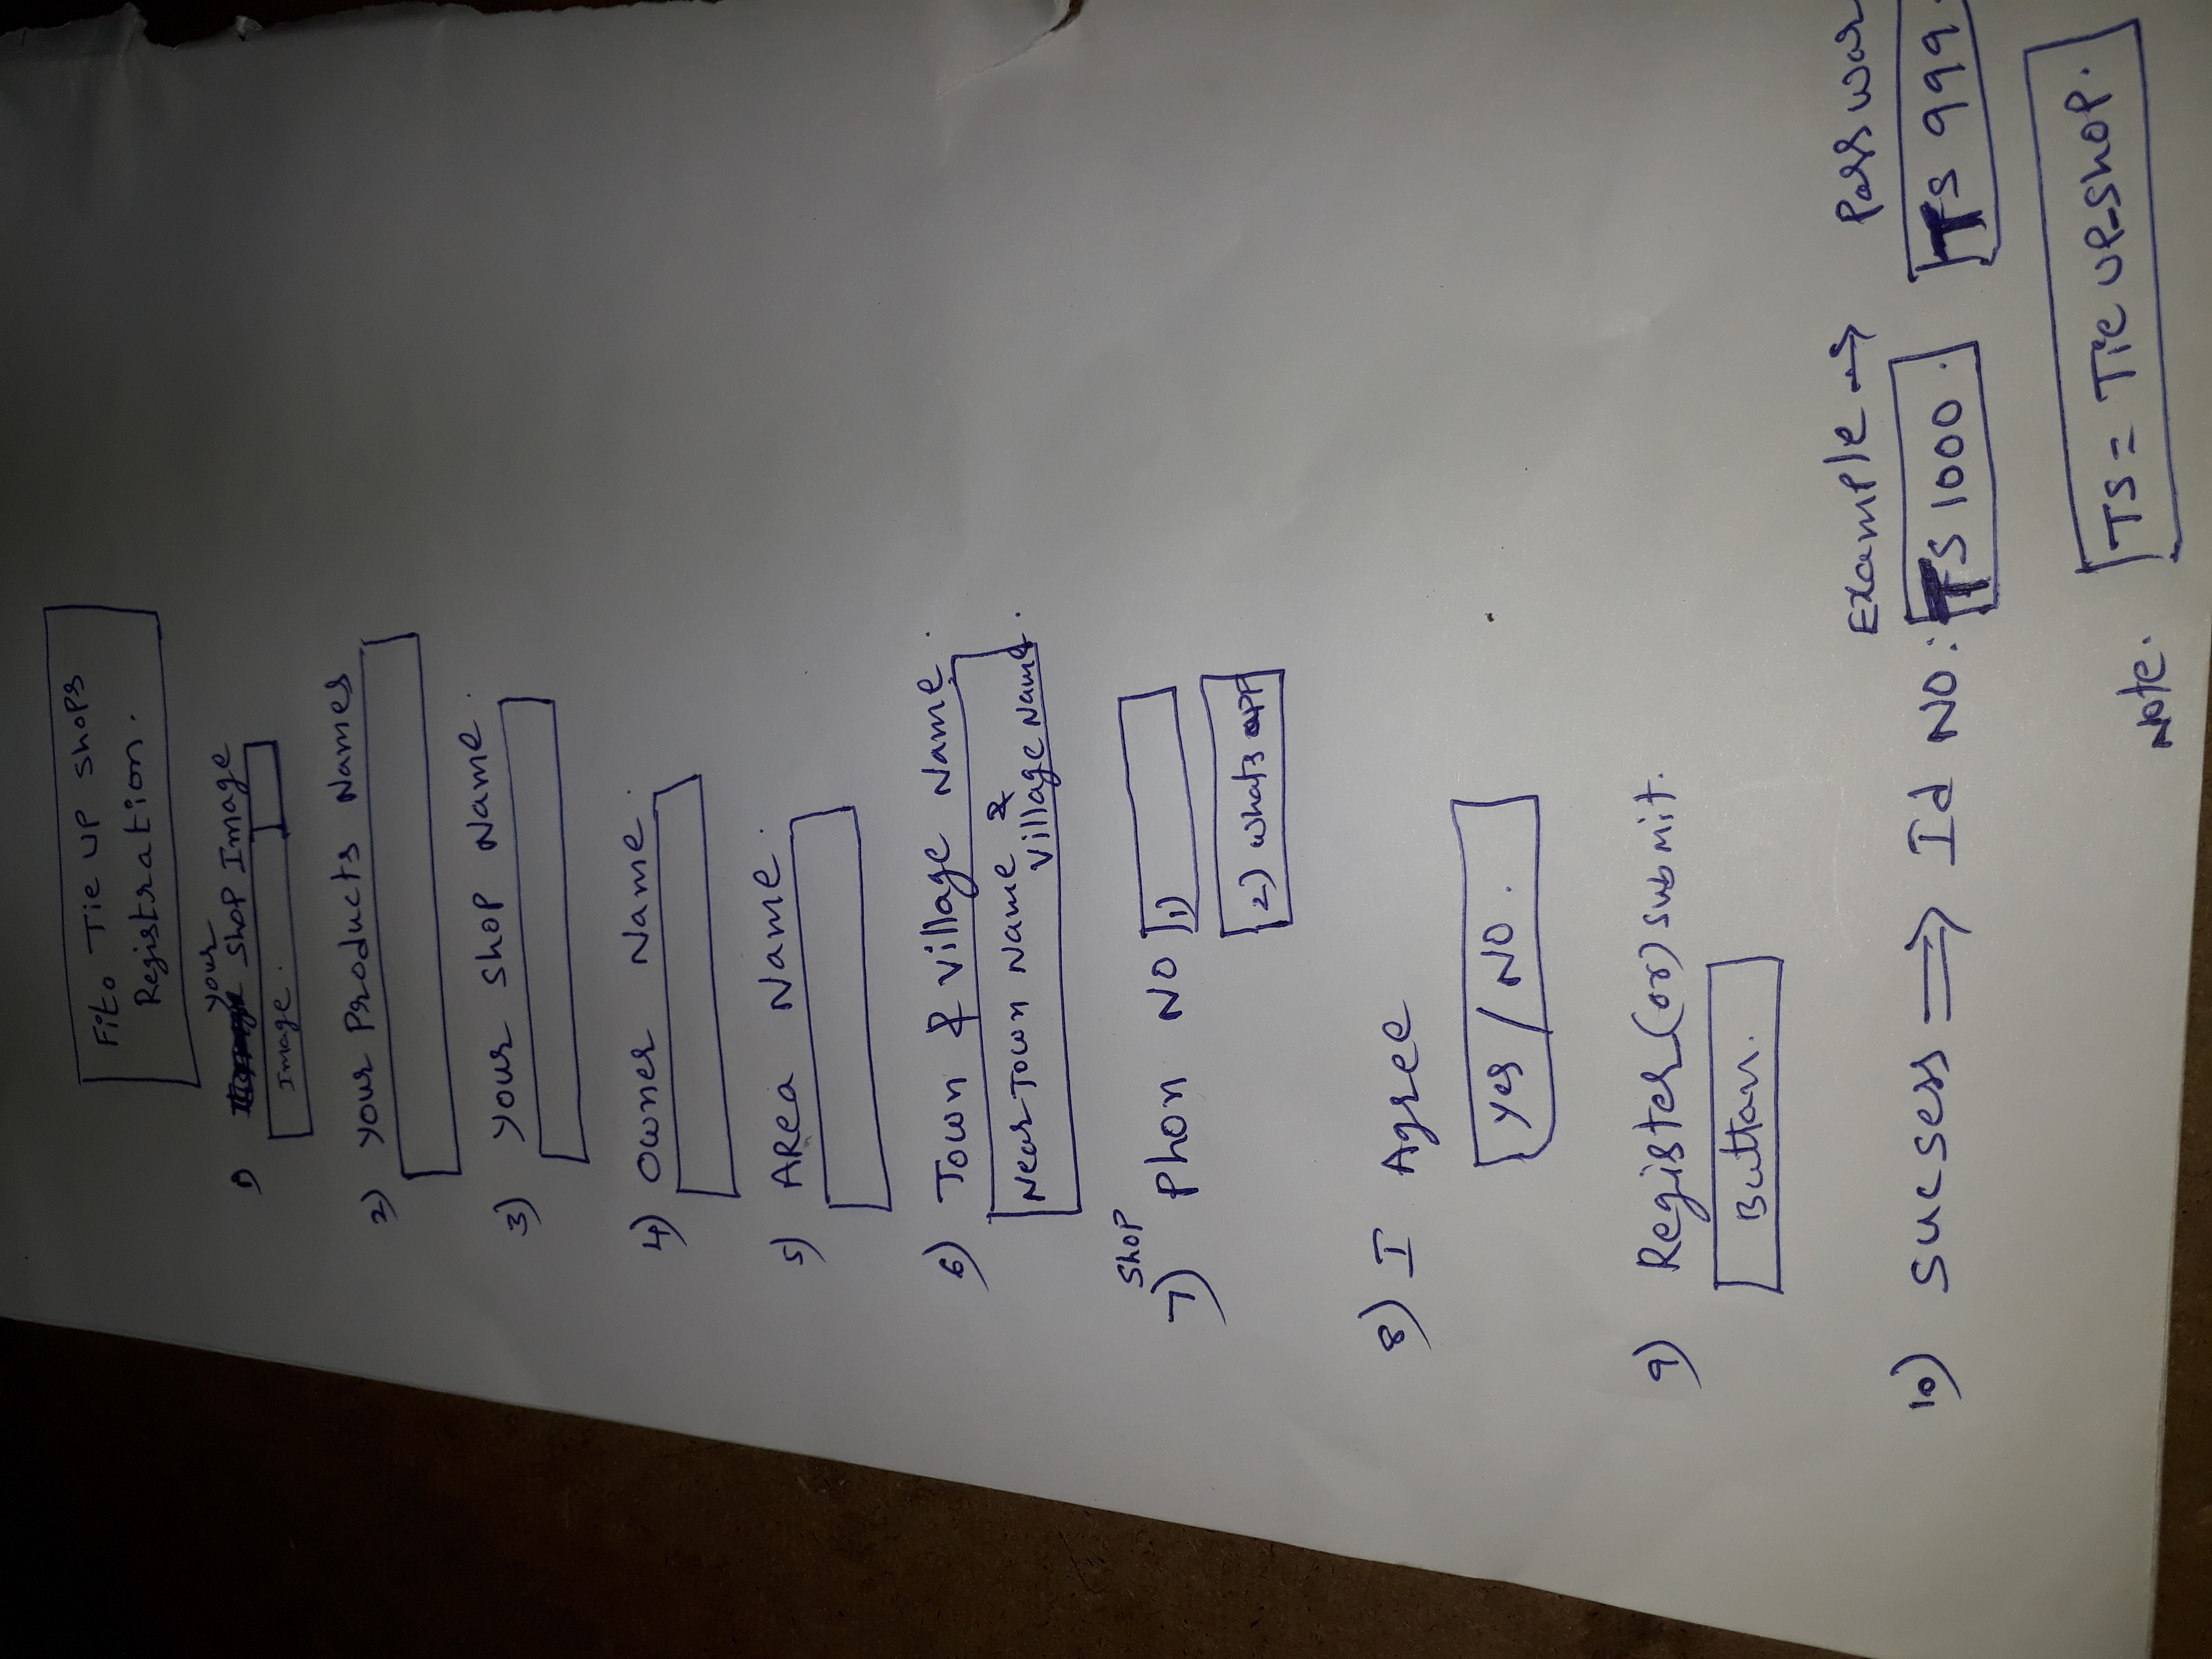 Fito Tie UP Shops
Registration.
1) your Shop Image
Image.
2) your Products Names
3) your shop Name.
4) Owner Name.
5) ARea Name.
6) Town & village Name.
Near Town Name &
village Name.
7) Shop phon NO 1)
2) whats app
8) I Agree
yes / NO.
9) Register (or) submit.
Button.
Example → Passwor
10) sucsess ⇒ Id NO: TS 1000. TS 999.
Note. TS = Tie UP-Shop.